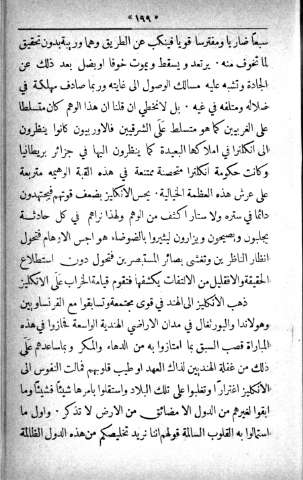 « ١٩٩ »
سبعًا ضاريا ومفترسا قويا فينكب عن الطريق وهما وريبة بدون تحقيق
لما تخوف منه . يرتعد ويسقط ويموت خوفا او يضل بعد ذلك عن
الجادة وتشبه عليه مسالك الوصول الى غايته وربما صادف مهلكة في
ضلاله ومتلفه في غيه . بل لا تخطي ان قلنا ان هذا الوهم كان متسلطا
على الغربيين كما هو متسلط على الشرقيين فالاوربيون كانوا ينظرون
الى انكلترا في املاكها البعيدة كما ينظرون اليها في جزائر بريطانيا
وكانت حكومة انكلترا متحصنة متمنعة في هذه القبة الوهمية متربعة
على عرش هذه العظمة الخيالية . يحس الانكليز بضعف قوتهم فيجتهدون
دائما في ستره ولا ستار اكثف من الوهم ولهذا تراهم في كل حادثة
يجلبون ويصيحون ويزارون ليثيروا بالضوضاء هو اجس الاوهام فتحول
انظار الناظرين وتغشى بصائر المستبصرين فتحول دون استطلاع
الحقيقة والاقليل من الالتفات يكشفها فتقوم قيامة الخراب على الانكليز
ذهب الانكليز الى الهند في قوى مجتمعة وتسابقوا مع الفرنساويين
وهولاندا والبورتغال في مدان الاراضي الهندية الواسعة فحازوا في هذه
المباراة قصب السبق بما امتازوا به من الدهاء والمكر وبمساعدهم على
ذلك من غفلة الهنديين لذاك العهد او طيب قلوبهم فمالت النفوس الى
الانكليز اغترارًا وتغلبوا على تلك البلاد واستقلوا بامرها شيئًا فشيئًا وما
ابقوا لغيرهم من الدول الا مضائق من الارض لا تذكر . واول ما
استمالوا به القلوب السالمة قولهم اننا نريد تخليصكم من هذه الدول الظالمة